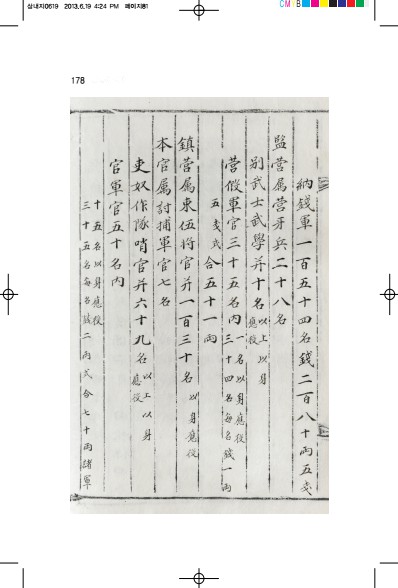 삼내지0619 2013.6.19 4:24 PM 페이지81
C M B
178
納錢軍一百五十四名錢二百八十兩五戔
監營屬營牙兵二十八名
別武士武學幷十名以上以身
應役
營假軍官三十五名內一名以身應役
三十四名每名錢一兩
五戔式合五十一兩
鎭營屬束伍將官幷一百三十名以身應役
本官屬討捕軍官七名
吏奴作隊哨官幷六十九名以上以身
應役
官軍官五十名內
十五名以身應役
三十五名每名錢二兩式合七十兩諸軍